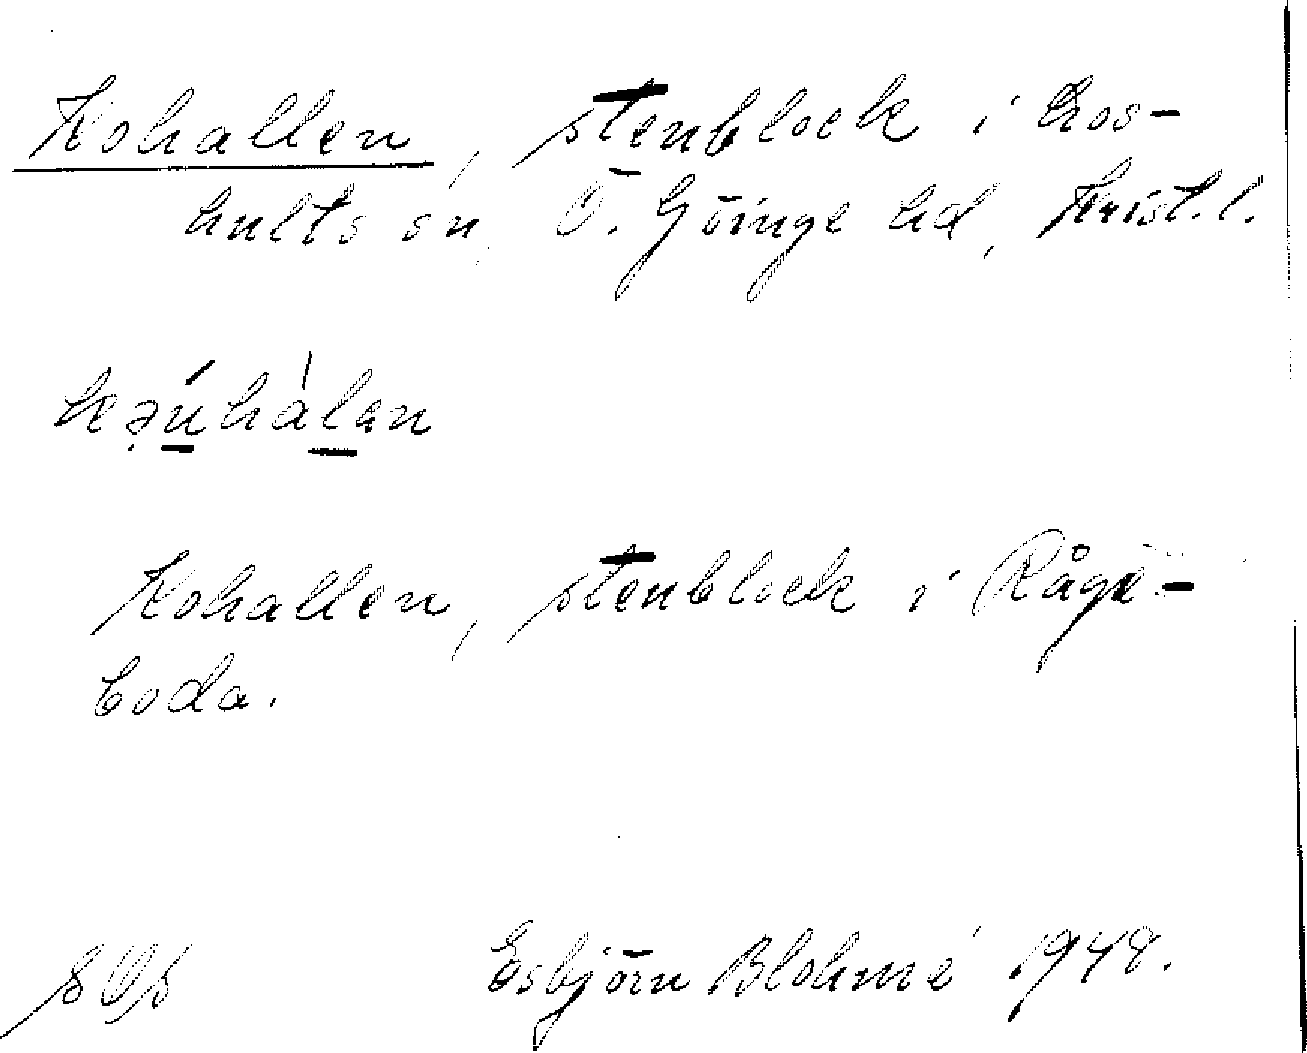 Kohallen, stenblock i Los-
hults sn, Ö. Göinge hd, Krist. l.
kəúhàlən
Kohallen, stenblock i Råge-
boda.
Esbjörn Blohmé 1948.